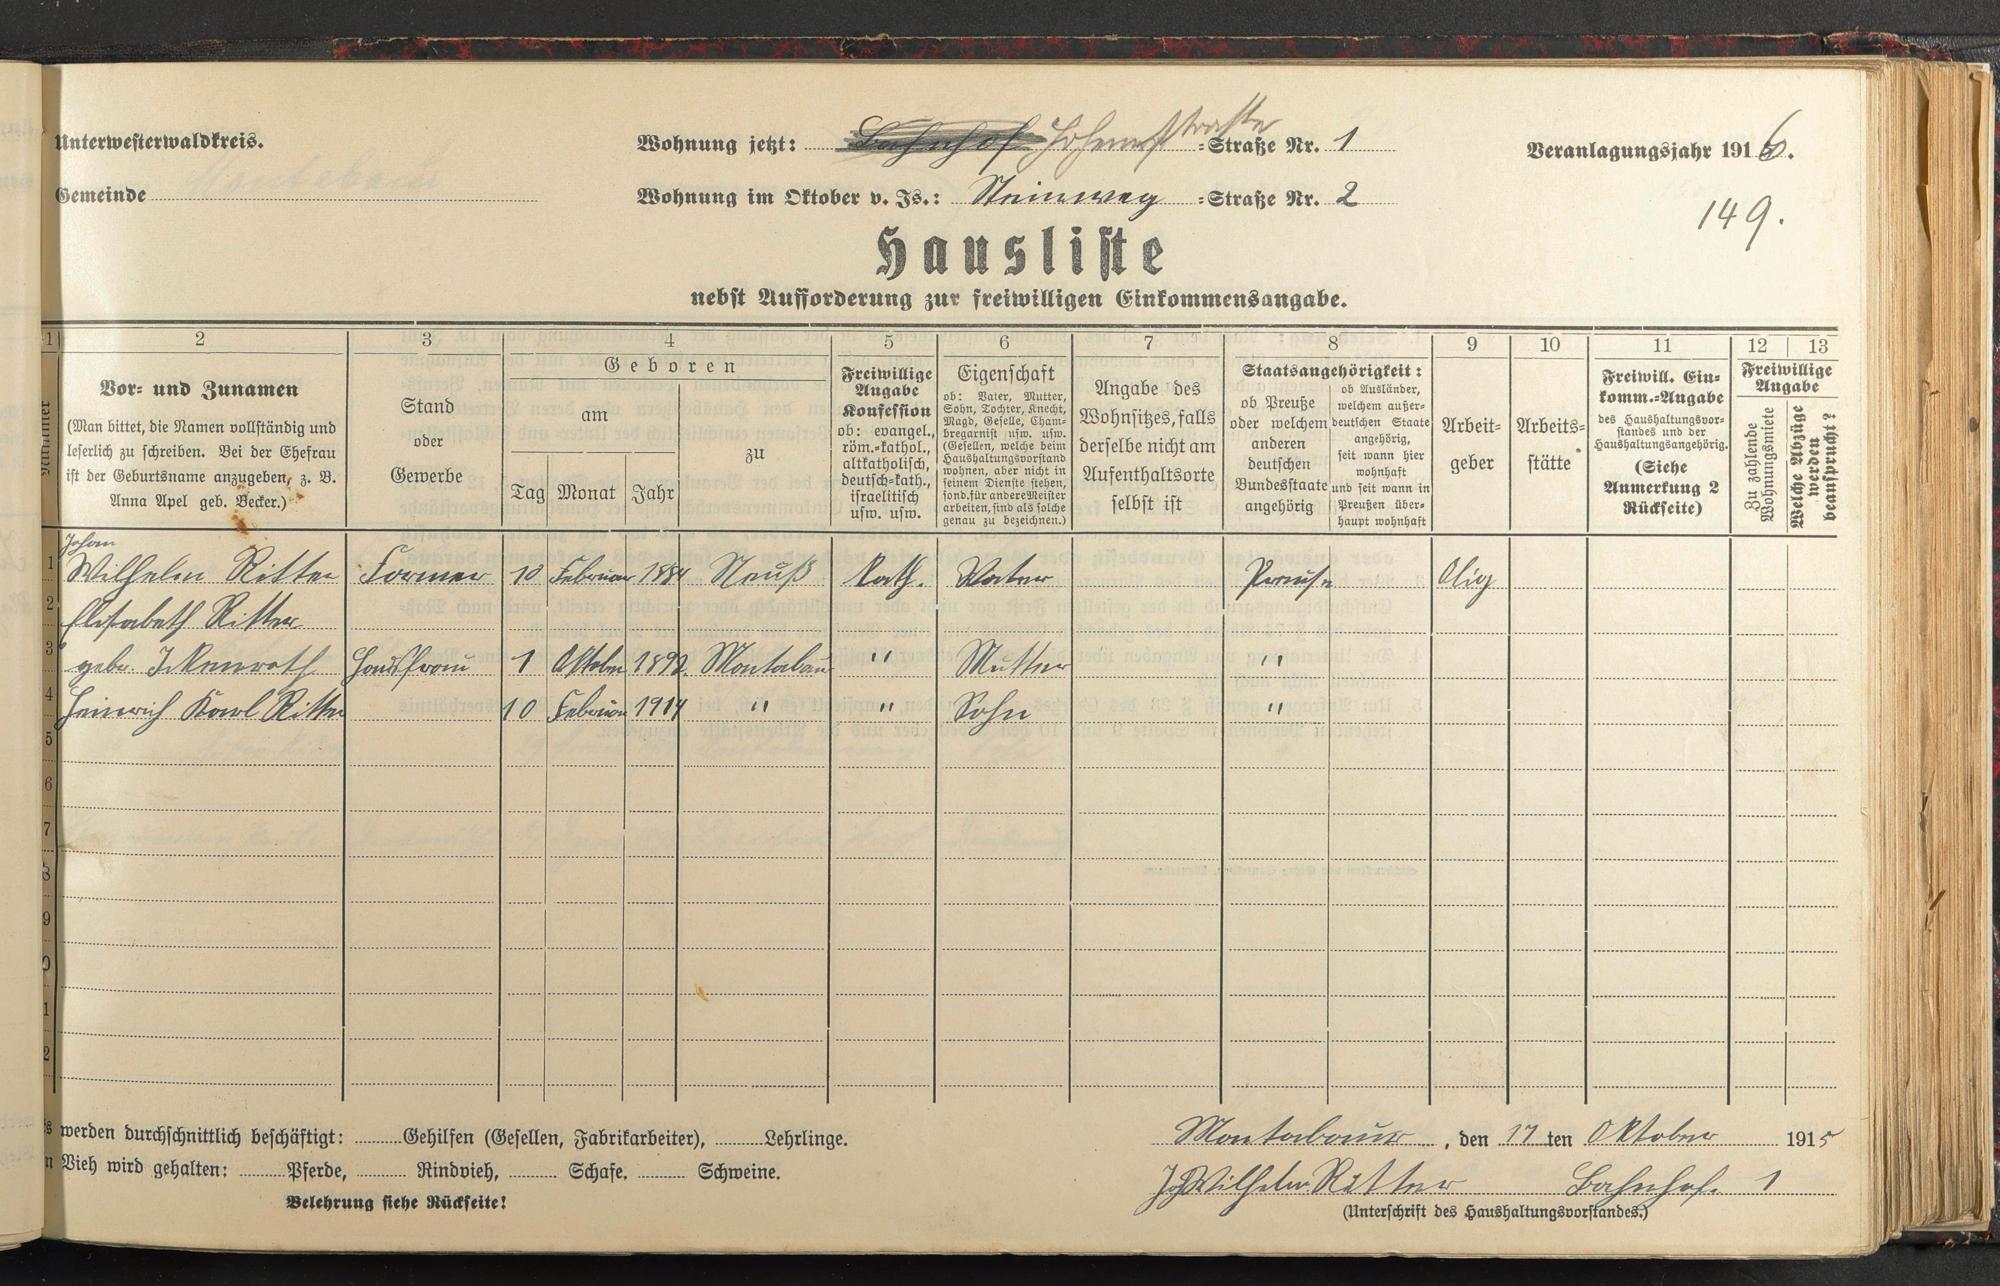 Unterwesterwaldkreis.
Gemeinde
Wohnung jetzt: Bahnhof Straße Nr. 1
Wohnung im Oktober v. Js.: Steinweg =Straße Nr. 2
Veranlagungsjahr 1916.
149.
Hausliste
nebst Aufforderung zur freiwilligen Einkommensangabe.
1 2 3 4 5 6 7 8 9 10 11 12 13
Nummer
Vor- und Zunamen
(Man bittet, die Namen vollständig und
leserlich zu schreiben. Bei der Ehefrau
ist der Geburtsname anzugeben, z. B.
Anna Apel geb. Becker.)
Stand
oder
Gewerbe
Geboren
am
Tag Monat Jahr
zu
Freiwillige
Angabe
Konfession
ob: evangel.,
röm.-kathol.,
altkatholisch,
deutsch-kath.,
israelitisch
usw. usw.
Eigenschaft
ob: Vater, Mutter,
Sohn, Tochter, Knecht,
Magd, Geselle, Cham-
bregarnist usw. usw.
(Gesellen, welche beim
Haushaltungsvorstand
wohnen, aber nicht in
seinem Dienste stehen,
sond. für andere Meister
arbeiten, sind als solche
genau zu bezeichnen.)
Angabe des
Wohnsitzes, falls
derselbe nicht am
Aufenthaltsorte
selbst ist
Staatsangehörigkeit:
ob Preuße
oder welchem
anderen
deutschen
Bundesstaate
angehörig
ob Ausländer,
welchem außer-
deutschen Staate
angehörig,
seit wann hier
wohnhaft
und seit wann in
Preußen über-
haupt wohnhaft
Arbeit-
geber
Arbeits-
stätte
Freiwill. Ein-
komm.-Angabe
des Haushaltungsvor-
standes und der
Haushaltungsangehörig.
(Siehe
Anmerkung 2
Rückseite)
Freiwillige
Angabe
Zu zahlende
Wohnungsmiete
Welche Abzüge
werden
beansprucht?
Johann
1 Wilhelm Ritter Former 10 Februar 1884 Neuß kath. Vater Preuße
2 Elisabeth Ritter
3 geb. Hausfrau 1 Oktober 1892 Montabaur " Mutter "
4 Heinrich Karl Ritter 10 Februar 1914 " " Sohn "
5
6
7
8
9
0
1
2
werden durchschnittlich beschäftigt: Gehilfen (Gesellen, Fabrikarbeiter), Lehrlinge.
Vieh wird gehalten: Pferde, Rindvieh, Schafe. Schweine.
Belehrung siehe Rückseite!
Montabaur, den 17 ten Oktober 1915
Joh Wilhelm Ritter Bahnhof. 1
(Unterschrift des Haushaltungsvorstandes.)